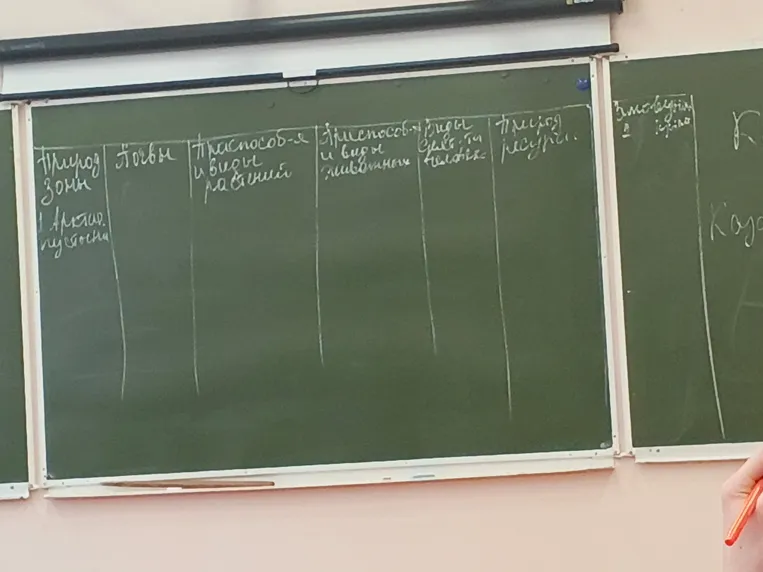 Природ
зоны
1. Арктич.
пустыни
Почвы
Приспособ-я
и виды
растений
Приспособ-я
и виды
животных
Виды
деят-ти
человек.
Природ
ресурсы.
и
К